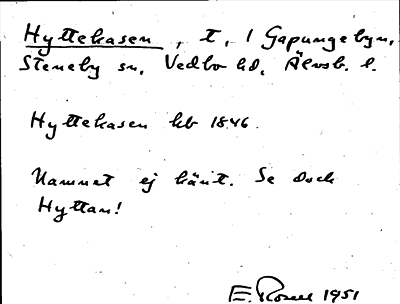 Hyttekasen, t, 1 Gapungebyn,
Steneby sn, Vedbo hd, Älvsb. l.
Hyttekasen hb 1846.
Namnet ej känt. Se dock
Hyttan!
E. Rosell 1951